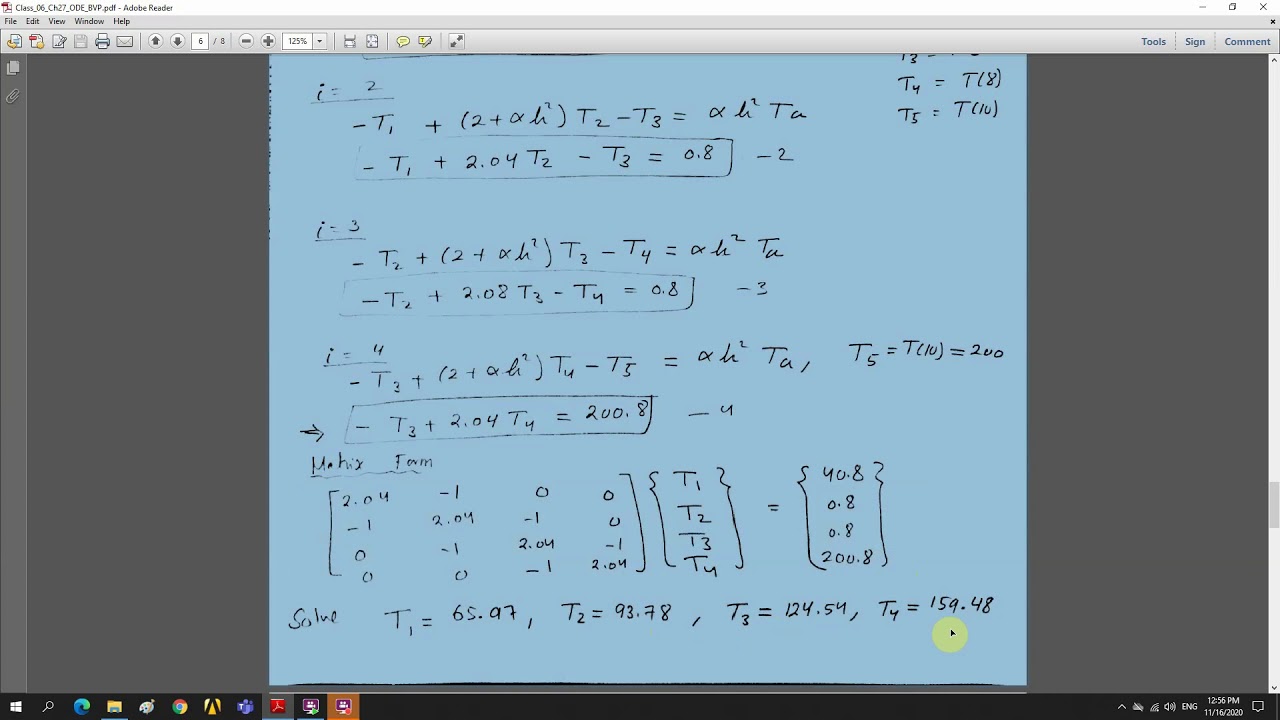 Class_06_Ch27_ODE_BVP.pdf - Adobe Reader
File Edit View Window Help
6 / 8 125% Tools Sign Comment
i = 2
T4 = T(8)
-T1 + (2+αh²) T2 - T3 = αh² Ta
T5 = T(10)
- T1 + 2.04 T2 - T3 = 0.8 - 2
i = 3
- T2 + (2+αh²) T3 - T4 = αh² Ta
- T2 + 2.08 T3 - T4 = 0.8 - 3
i = 4
- T3 + (2+αh²) T4 - T5 = αh² Ta, T5 = T(10) = 200
⇒ - T3 + 2.04 T4 = 200.8 - 4
Matrix Form
2.04 -1 0 0 T1 = 40.8
-1 2.04 -1 0 T2 0.8
0 -1 2.04 -1 T3 0.8
0 0 -1 2.04 T4 200.8
Solve T1 = 65.97, T2 = 93.78, T3 = 124.54, T4 = 159.48
12:56 PM
11/16/2020